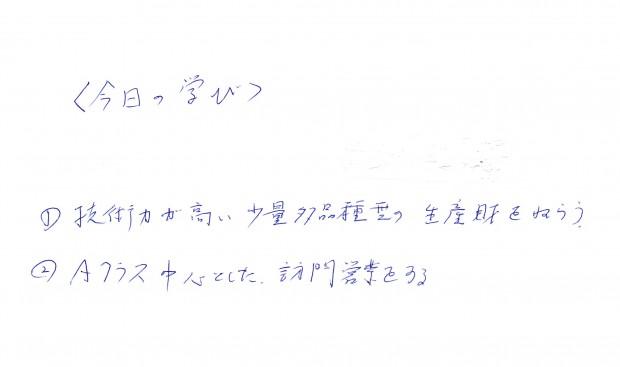 〈今日の学び〉
① 技術力が高い少量多品種型の生産財をねらう
② Aクラス中心とした、訪問営業をする